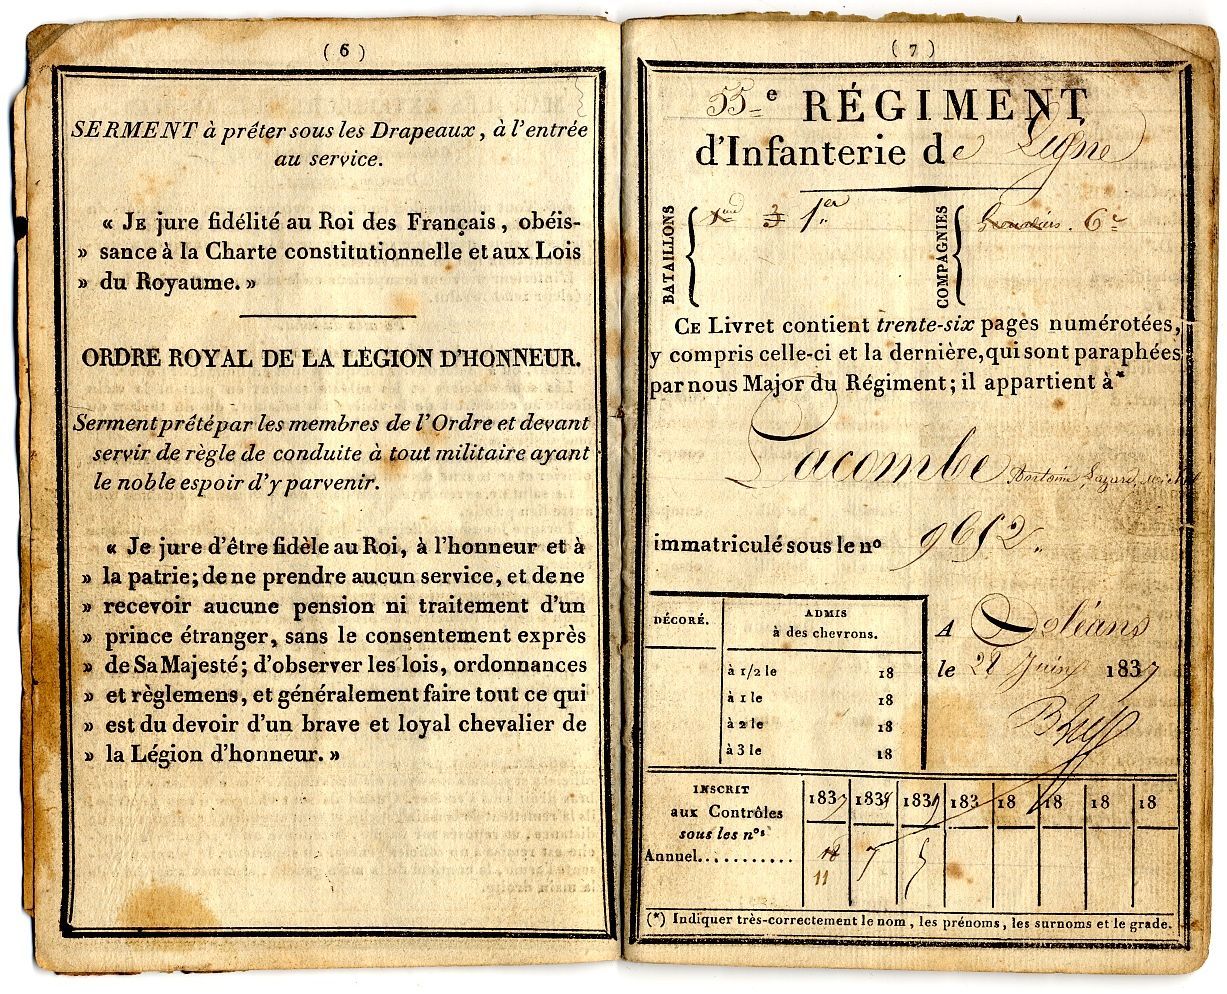 ( 6 )
SERMENT à prêter sous les Drapeaux, à l'entrée
au service.
« JE jure fidélité au Roi des Français, obéis-
» sance à la Charte constitutionnelle et aux Lois
» du Royaume. »
ORDRE ROYAL DE LA LÉGION D'HONNEUR.
Serment prêté par les membres de l'Ordre et devant
servir de règle de conduite à tout militaire ayant
le noble espoir d'y parvenir.
« Je jure d'être fidèle au Roi, à l'honneur et à
» la patrie; de ne prendre aucun service, et de ne
» recevoir aucune pension ni traitement d'un
» prince étranger, sans le consentement exprès
» de Sa Majesté; d'observer les lois, ordonnances
» et règlemens, et généralement faire tout ce qui
» est du devoir d'un brave et loyal chevalier de
» la Légion d'honneur. »
( 7 )
55e RÉGIMENT
d'Infanterie de Ligne
BATAILLONS 3 1er
COMPAGNIES 6e
CE Livret contient trente-six pages numérotées,
y compris celle-ci et la dernière, qui sont paraphées
par nous Major du Régiment; il appartient à*
Lacombe Antoine Lazare
immatriculé sous le no 9652
DÉCORÉ.
ADMIS
à des chevrons.
à 1/2 le 18
à 1 le 18
à 2 le 18
à 3 le 18
A Orléans
le Juin 1837
INSCRIT
aux Contrôles
sous les nos
Annuel...........
1837 1838 1839 183 18 18 18 18
11 7 5
(*) Indiquer très-correctement le nom, les prénoms, les surnoms et le grade.